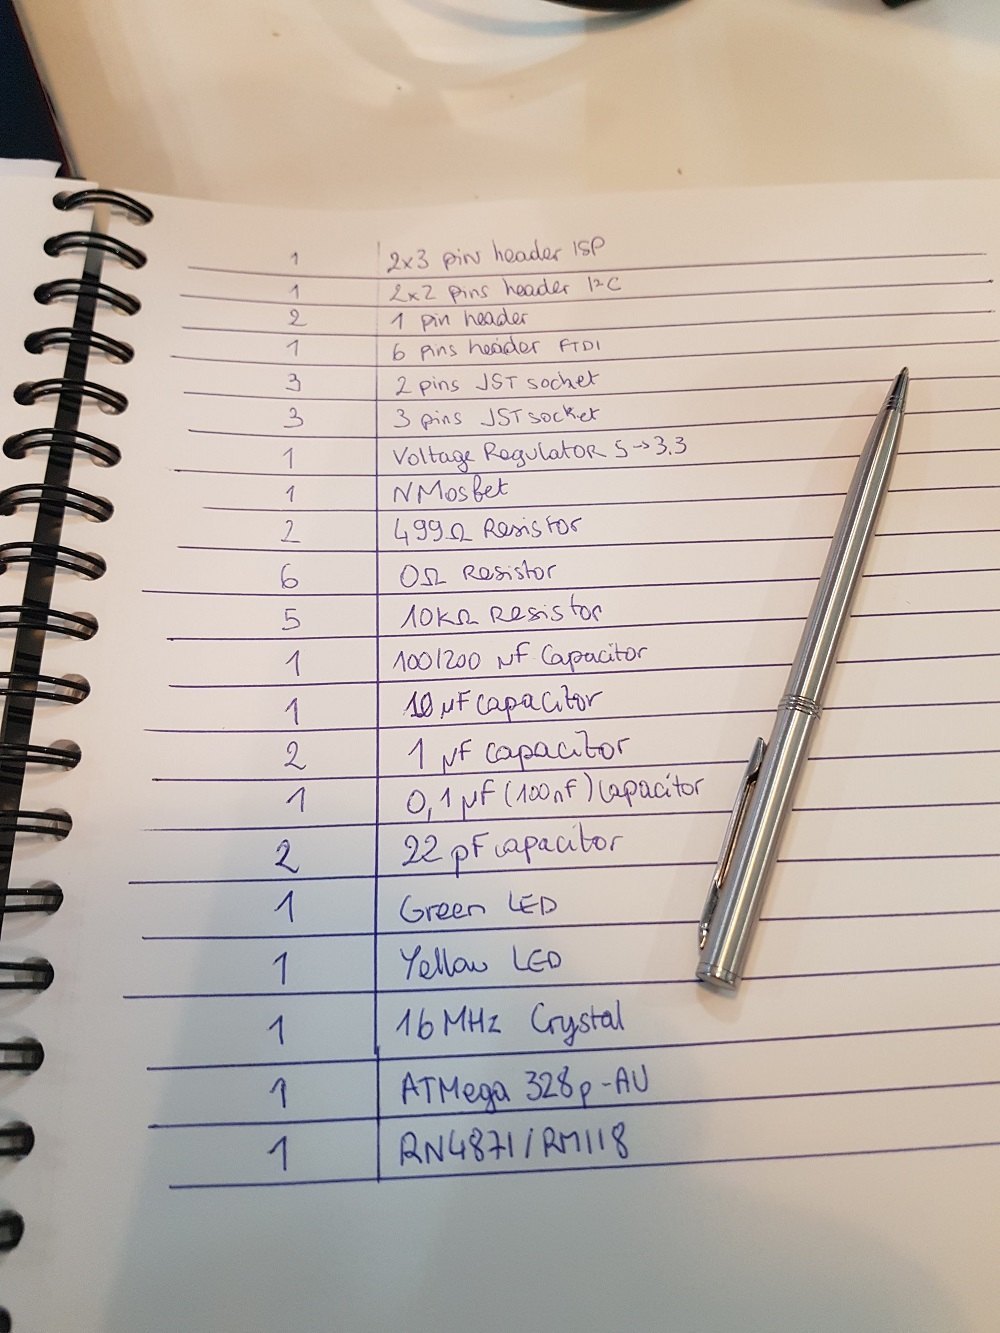 1 2x3 pin header ISP
1 2x2 pins header I²C
2 1 pin header
1 6 pins header FTDI
3 2 pins JST socket
3 3 pins JST socket
1 Voltage Regulator 5→3.3
1 NMosfet
2 499Ω Resistor
6 0Ω Resistor
5 10KΩ Resistor
1 100/200 µF Capacitor
1 10 µF capacitor
2 1 µF capacitor
1 0,1 µF (100nF) Capacitor
2 22 pF capacitor
1 Green LED
1 Yellow LED
1 16 MHz Crystal
1 ATMega 328p-AU
1 RN4871/RM118